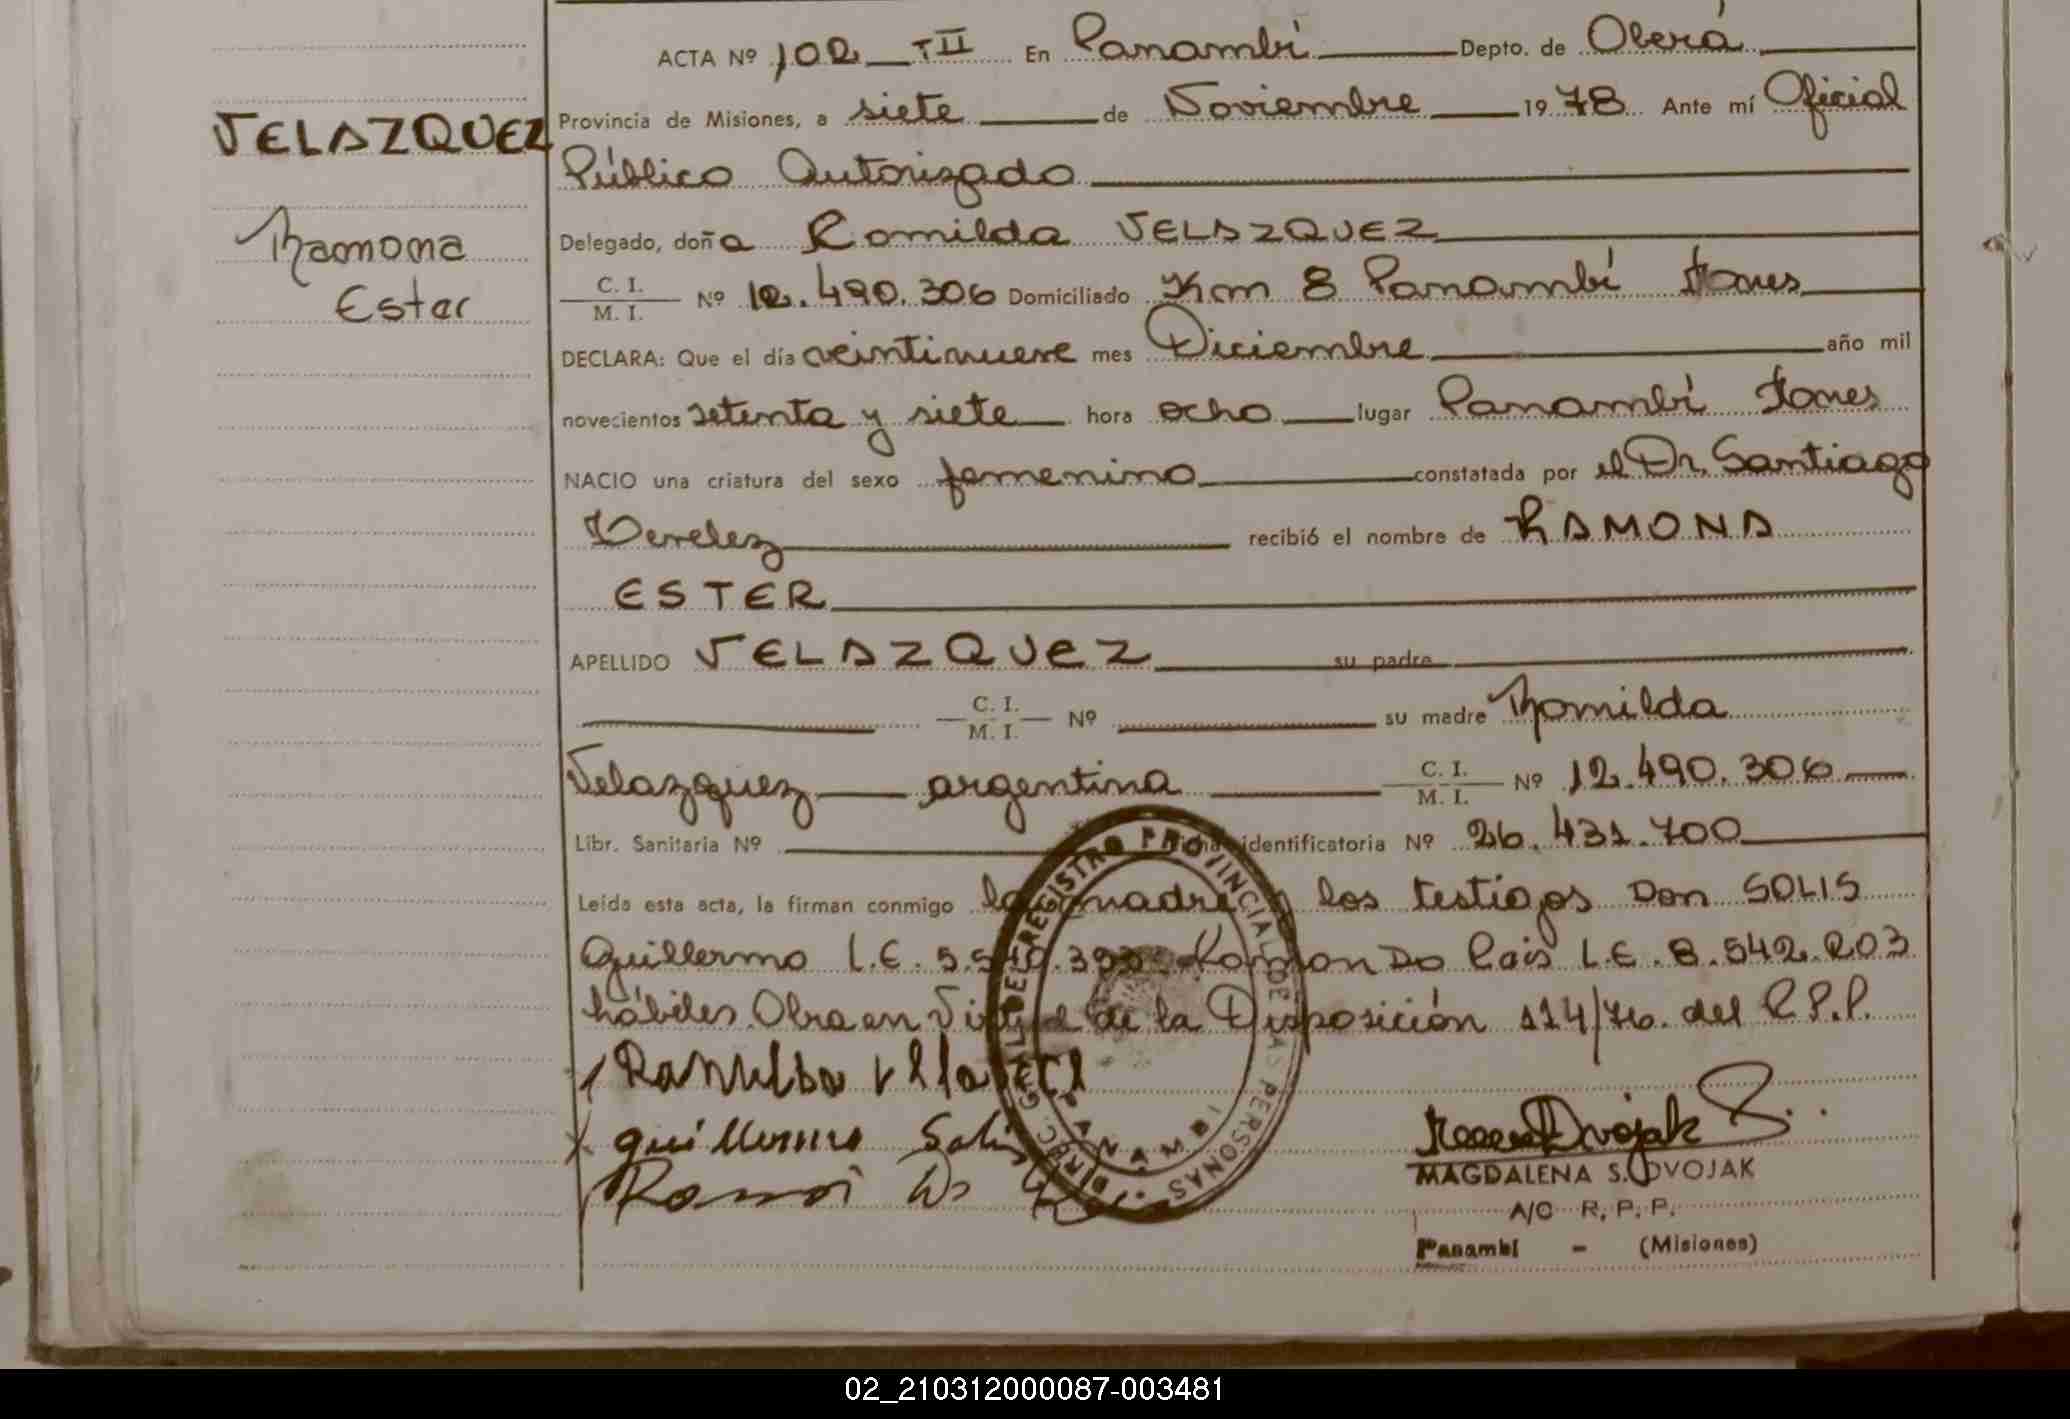 ACTA Nº 102 TII En Panambí Depto. de Oberá
VELAZQUEZ
Provincia de Misiones, a siete de Noviembre 1978 Ante mí Oficial
Público Autorizado
Ramona
Ester
Delegado, doña Romilda VELAZQUEZ
C. I.
M. I.
Nº 12.490.306 Domiciliado Km 8 Panambí
DECLARA: Que el día veintinueve mes Diciembre año mil
novecientos setenta y siete hora ocho lugar Panambí
NACIO una criatura del sexo femenino constatada por el Dr. Santiago
recibió el nombre de RAMONA
ESTER
APELLIDO VELAZQUEZ su padre
C. I.
M. I.
Nº su madre Romilda
Velazquez argentina C. I.
M. I.
Nº 12.490.306
Libr. Sanitaria Nº identificatoria Nº 26.431.700
Leída esta acta, la firman conmigo la madre los testigos Don SOLIS
Guillermo L.E. Ramon Do L.E. 8.542.203
hábiles. Obra en Virtud de la Disposición 114/76. del R.P.P.
Guillermo Solis
Dvojak
MAGDALENA S. DVOJAK
A/C R. P. P.
Panambí - (Misiones)
DIREC. GRAL. DEL REGISTRO PROVINCIAL DE LAS PERSONAS
PANAMBI
02_210312000087-003481